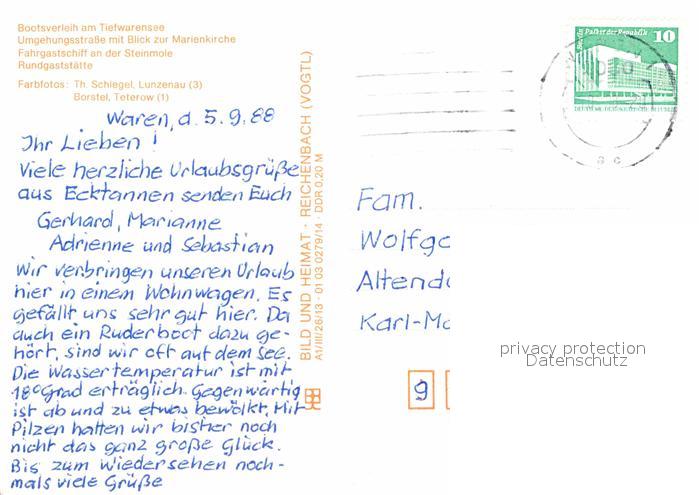 Bootsverleih am Tiefwarensee
Umgehungsstraße mit Blick zur Marienkirche
Fahrgastschiff an der Steinmole
Rundgaststätte
Farbfotos: Th. Schlegel, Lunzenau (3)
Borstel, Teterow (1)
Waren, d. 5.9.88
Ihr Lieben!
Viele herzliche Urlaubsgrüße
aus Ecktannen senden Euch
Gerhard, Marianne
Adrienne und Sebastian
Wir verbringen unseren Urlaub
hier in einem Wohnwagen. Es
gefällt uns sehr gut hier. Da
auch ein Ruderboot dazu ge-
hört, sind wir oft auf dem See.
Die Wassertemperatur ist mit
18° Grad erträglich. Gegenwärtig
ist ab und zu etwas bewölkt. Mit
Pilzen hatten wir bisher noch
nicht das ganz große Glück.
Bis zum Wiedersehen noch-
mals viele Grüße
BILD UND HEIMAT · REICHENBACH (VOGTL)
A1/III/26/13 · 01 03 0279/14 · DDR 0,20 M
Berlin, Palast der Republik
10
Fam.
Wolfga
Altend
Karl-Ma
9
privacy protection
Datenschutz